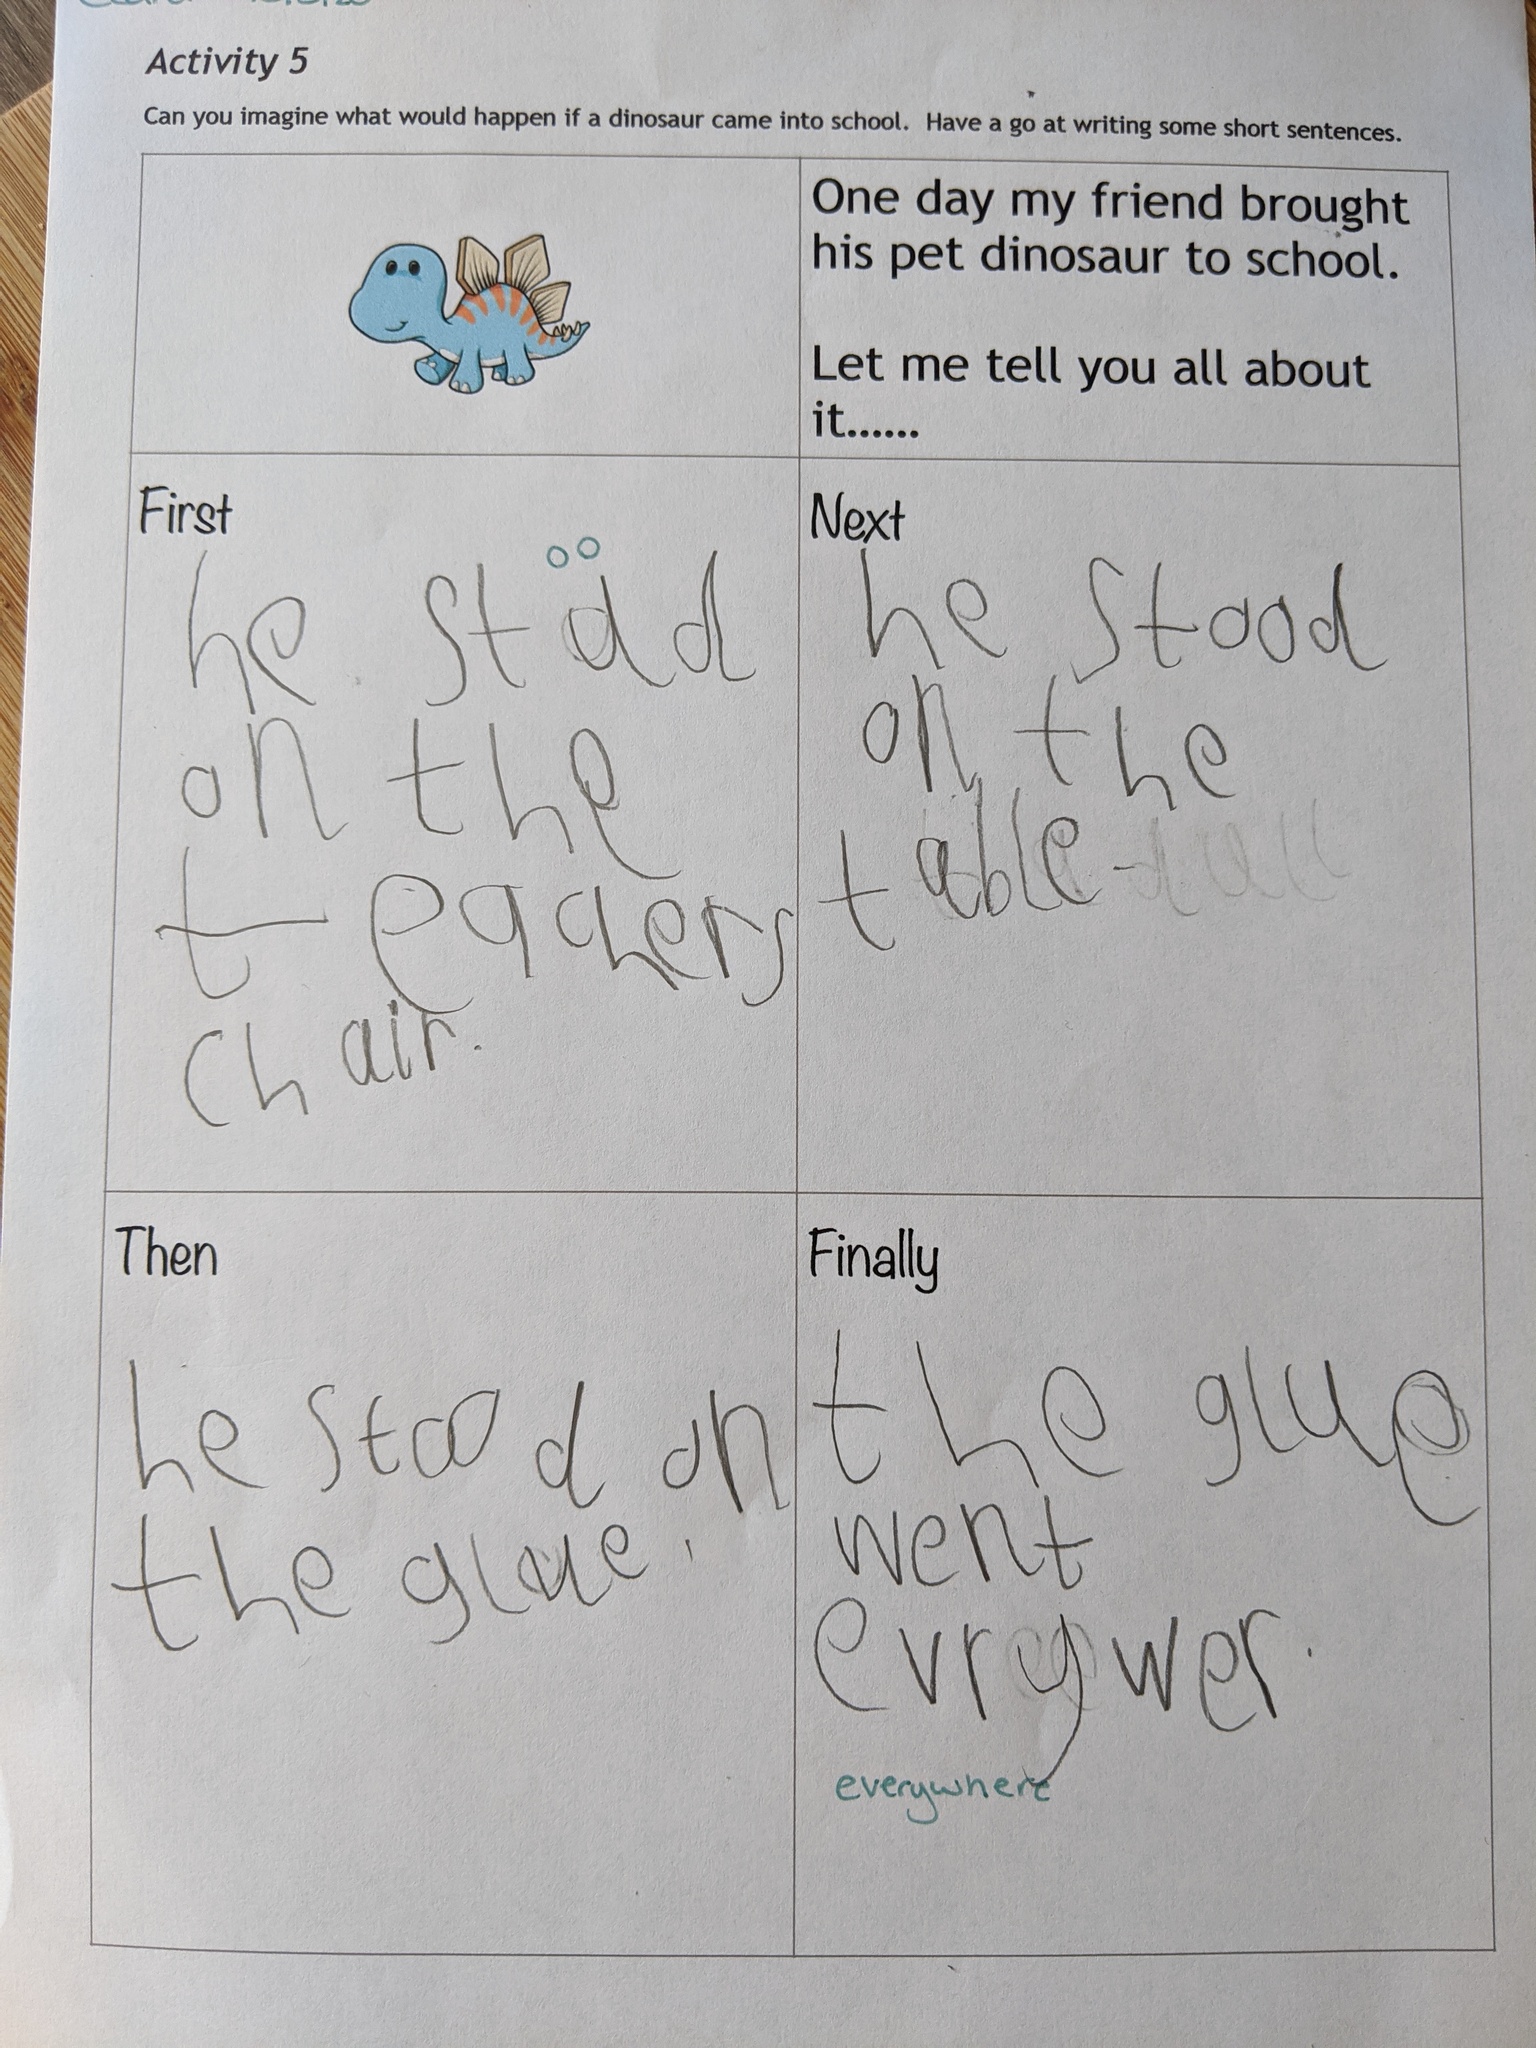 Activity 5
Can you imagine what would happen if a dinosaur came into school. Have a go at writing some short sentences.
One day my friend brought
his pet dinosaur to school.
Let me tell you all about
it......
First
oo
he stad
on the
teachers
chair.
Next
he stood
on the
table
Then
he stood on
the glue.
Finally
the glue
went
evrywer.
everywhere